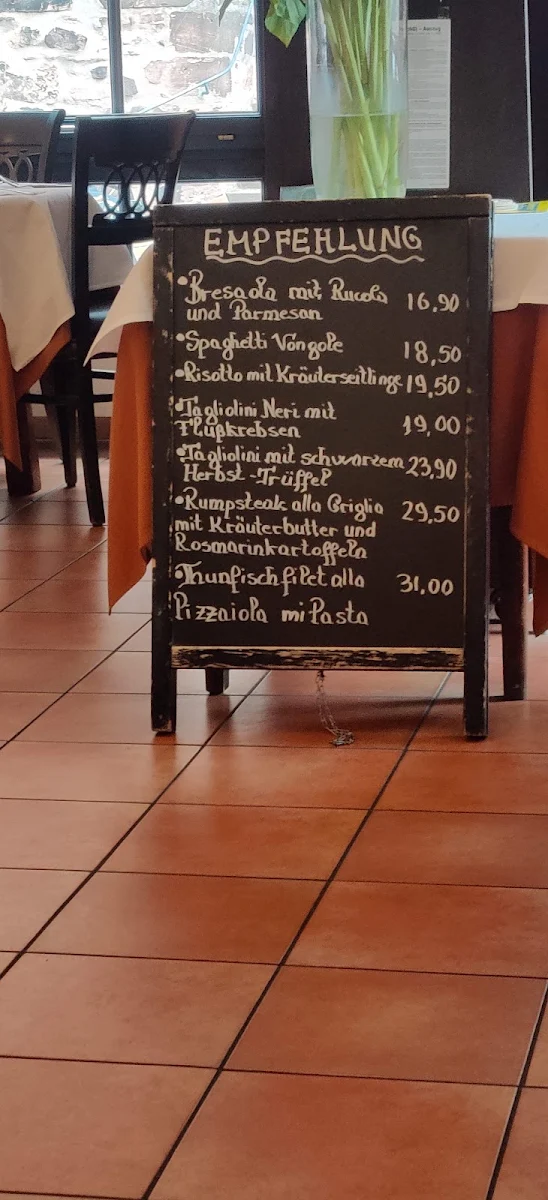 EMPFEHLUNG
•Bresaola mit Rucola 16,90
und Parmesan
•Spaghetti Vongole 18,50
•Risotto mit Kräuterseitlinge 19,50
•Tagliolini Neri mit
Flußkrebsen 19,00
•Tagliolini mit schwarzem 23,90
Herbst-Trüffel
•Rumpsteak alla Griglia 29,50
mit Kräuterbutter und
Rosmarinkartoffeln
•Thunfischfilet alla 31,00
Pizzaiola mi Pasta